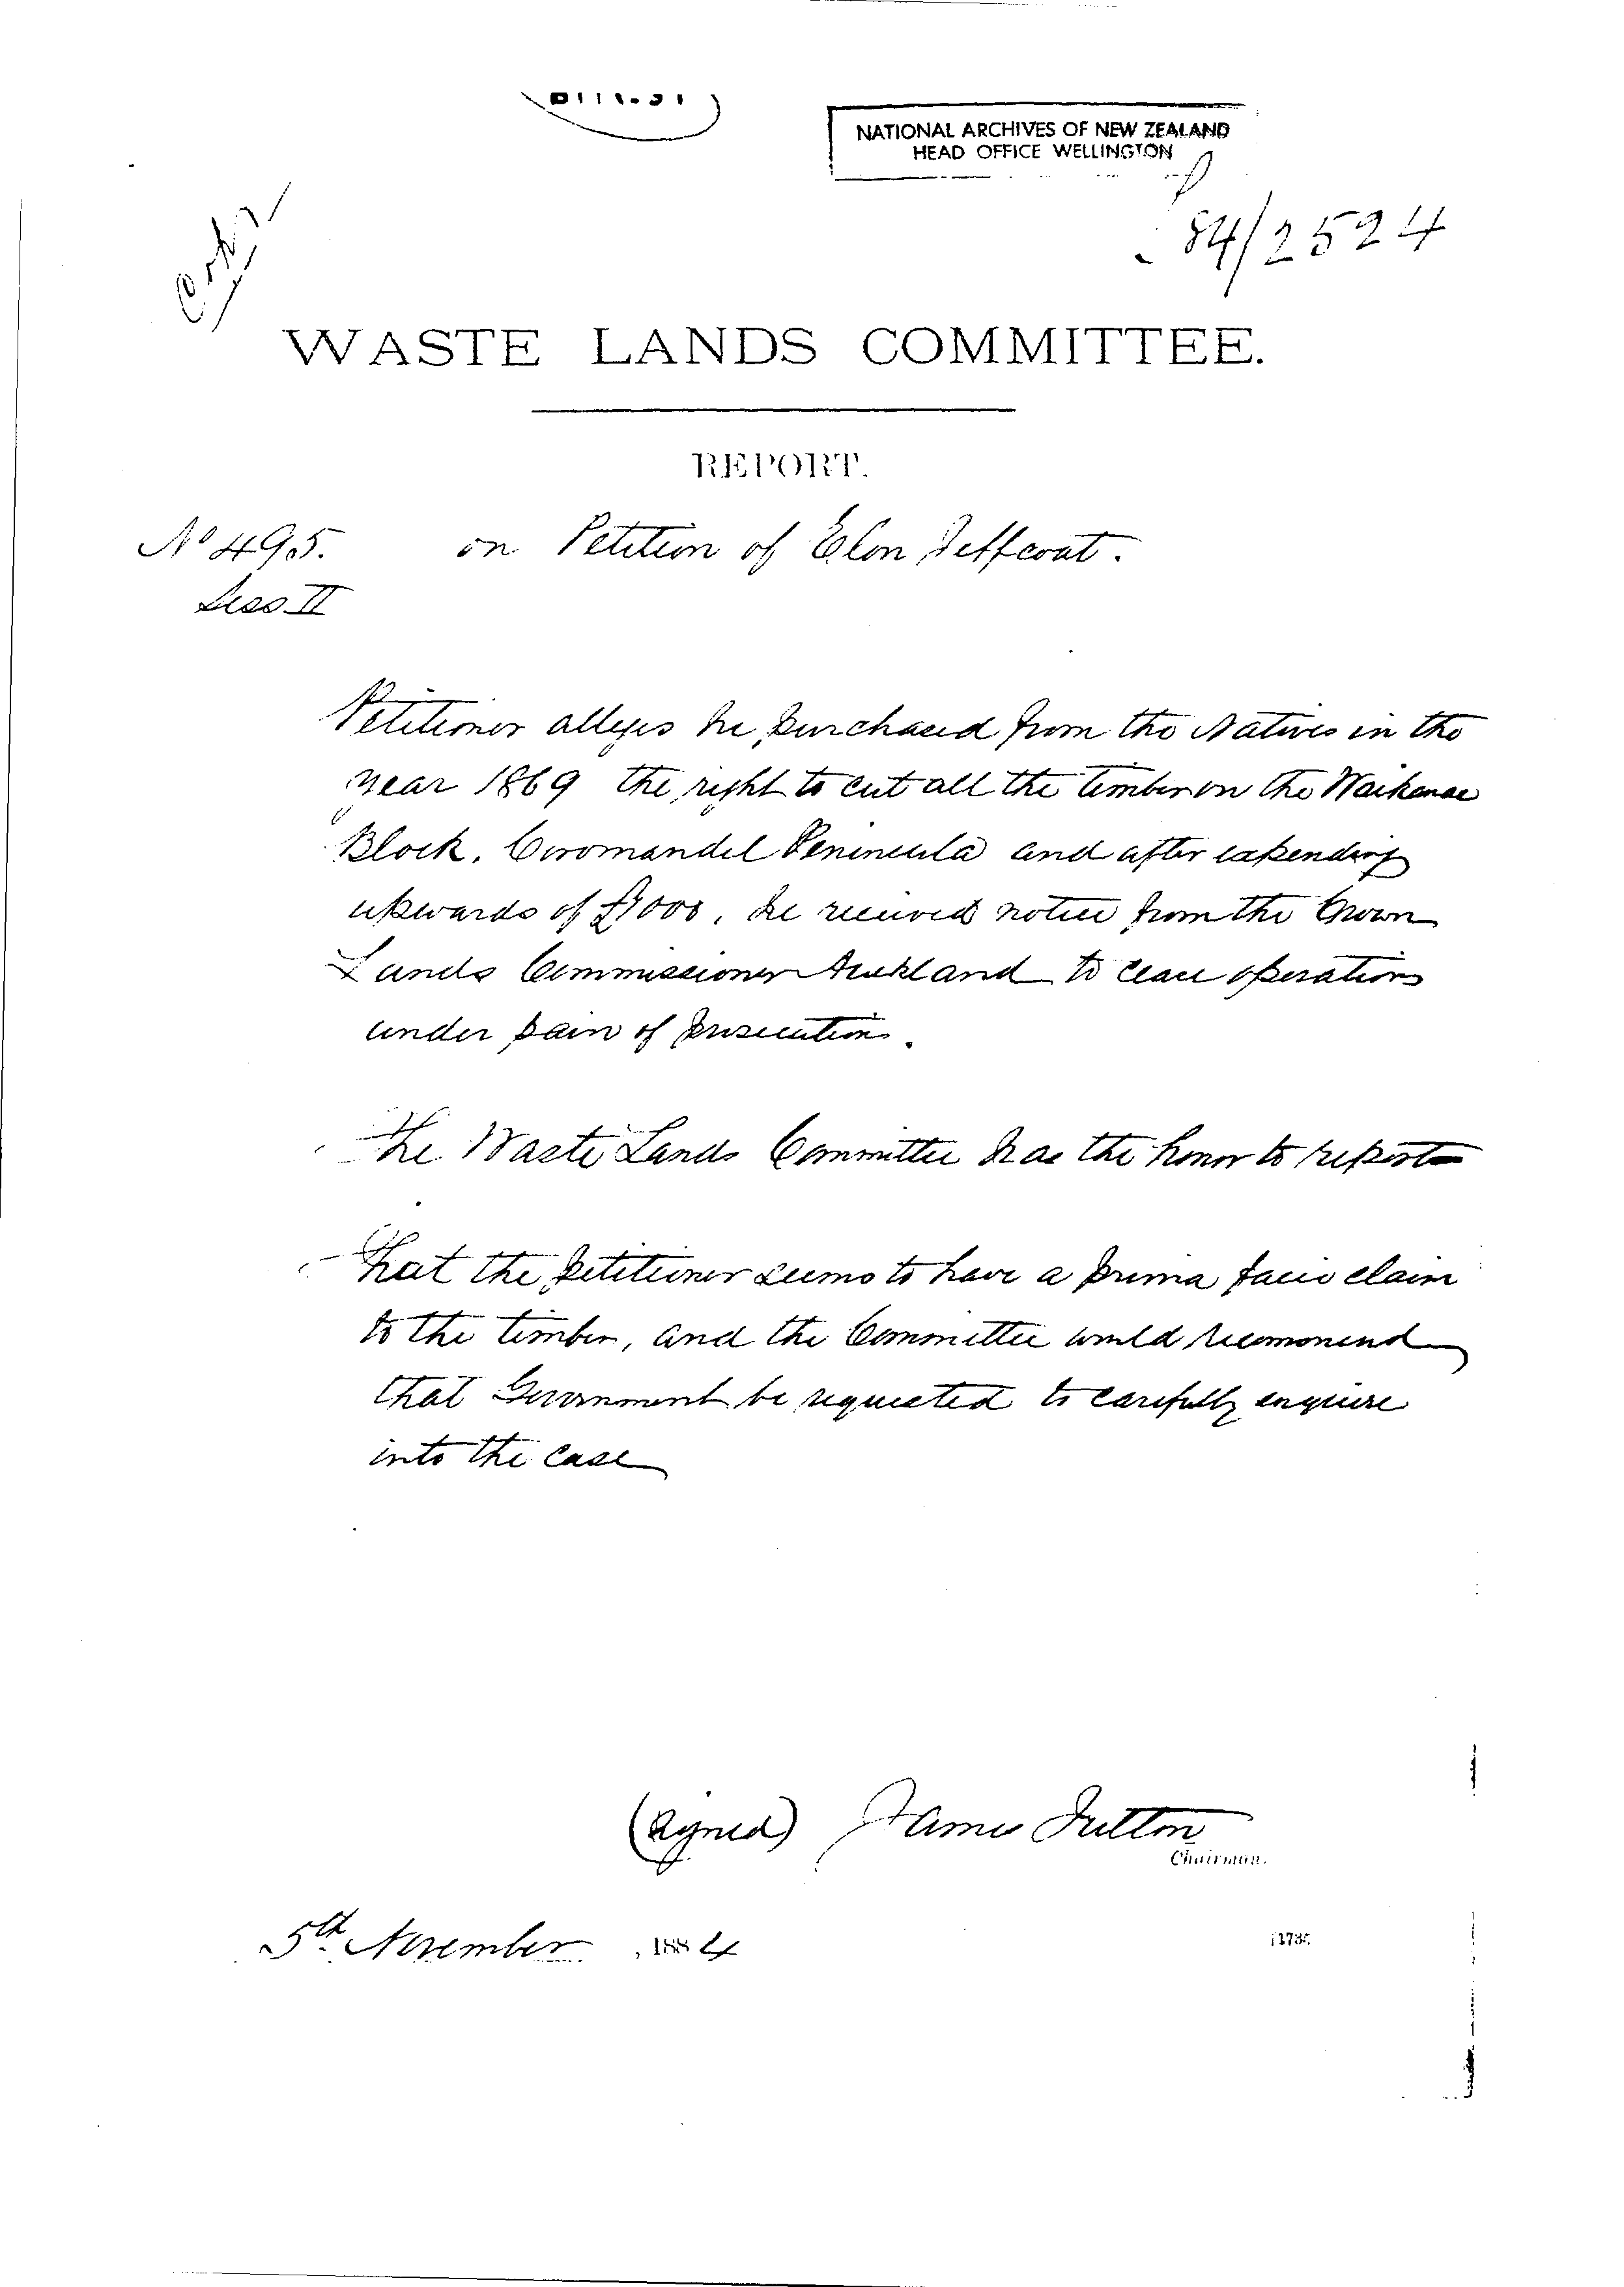 NATIONAL ARCHIVES OF NEW ZEALAND
HEAD OFFICE WELLINGTON
84/2524
WASTE LANDS COMMITTEE.
REPORT.
No 495. on Petition of Elon Jeffcoat.
Sess II
Petitioner alleges he purchased from the Natives in the
year 1869 the right to cut all the timber on the
Block. Coromandel Peninsula and after expending
upwards of £1000, he received notice from the Crown
Lands Commissioner Auckland to cease operations
under pain of prosecution.
The Waste Lands Committee has the honor to report
That the petitioner seems to have a prima facie claim
to the timber, and the Committee would recommend
that Government be requested to carefully enquire
into the case
(signed) James Fulton
Chairman.
5th November, 1884